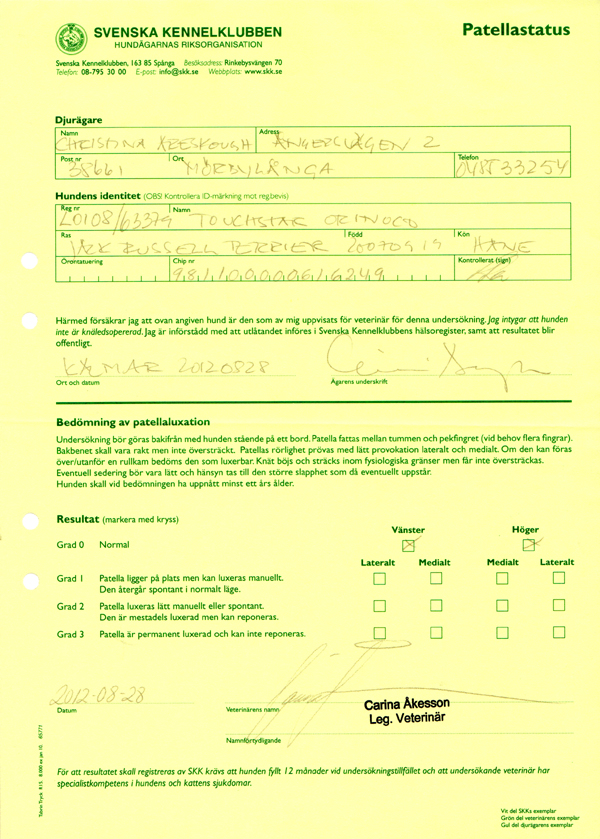 SVENSKA KENNELKLUBBEN
HUNDÄGARNAS RIKSORGANISATION
Patellastatus
Svenska Kennelklubben, 163 85 Spånga Besöksadress: Rinkebysvängen 70
Telefon: 08-795 30 00 E-post: info@skk.se Webbplats: www.skk.se
Djurägare
Namn Adress
CHRISTINA ÅNGERSVÄGEN 2
Post nr Ort Telefon
38661 MÖRBYLÅNGA 0485 33254
Hundens identitet (OBS! Kontrollera ID-märkning mot reg.bevis)
Reg nr Namn
20108/63379 TOUCHSTAR ORINOCO
Ras Född Kön
JACK RUSSELL TERRIER 20070919 HANE
Örontatuering Chip nr Kontrollerat (sign)
981100000616249
Härmed försäkrar jag att ovan angiven hund är den som av mig uppvisats för veterinär för denna undersökning. Jag intygar att hunden
inte är knäledsopererad. Jag är införstådd med att utlåtandet införes i Svenska Kennelklubbens hälsoregister, samt att resultatet blir
offentligt.
KALMAR 20120828
Ort och datum Ägarens underskrift
Bedömning av patellaluxation
Undersökning bör göras bakifrån med hunden stående på ett bord. Patella fattas mellan tummen och pekfingret (vid behov flera fingrar).
Bakbenet skall vara rakt men inte översträckt. Patellas rörlighet prövas med lätt provokation lateralt och medialt. Om den kan föras
över/utanför en rullkam bedöms den som luxerbar. Knät böjs och sträcks inom fysiologiska gränser men får inte översträckas.
Eventuell sedering bör vara lätt och hänsyn tas till den större slapphet som då eventuellt uppstår.
Hunden skall vid bedömningen ha uppnått minst ett års ålder.
Resultat (markera med kryss)
Vänster Höger
Grad 0 Normal
Lateralt Medialt Medialt Lateralt
Grad 1 Patella ligger på plats men kan luxeras manuellt.
Den återgår spontant i normalt läge.
Grad 2 Patella luxeras lätt manuellt eller spontant.
Den är mestadels luxerad men kan reponeras.
Grad 3 Patella är permanent luxerad och kan inte reponeras.
2012-08-28
Datum Veterinärens namn
Carina Åkesson
Leg. Veterinär
Namnförtydligande
För att resultatet skall registreras av SKK krävs att hunden fyllt 12 månader vid undersökningstillfället och att undersökande veterinär har
specialistkompetens i hundens och kattens sjukdomar.
Vit del SKKs exemplar
Grön del veterinärens exemplar
Gul del djurägarens exemplar